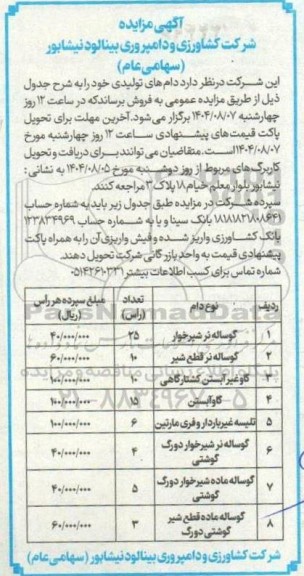 آگهی مزایده
شرکت کشاورزی و دامپروری بینالود نیشابور
(سهامی عام)
این شرکت درنظر دارد دام های تولیدی خود را به شرح جدول
ذیل از طریق مزایده عمومی به فروش برساند که در ساعت ۱۲ روز
چهارشنبه ۱۴۰۴/۰۸/۰۷ برگزار می شود. آخرین مهلت برای تحویل
پاکت قیمت های پیشنهادی ساعت ۱۲ روز چهارشنبه مورخ
۱۴۰۴/۰۸/۰۷ است. متقاضیان می توانند برای دریافت و تحویل
کاربرگ های مربوط از روز دوشنبه مورخ ۱۴۰۴/۰۸/۰۵ به نشانی :
نیشابور بلوار معلم خیام ۱۸ پلاک ۳ مراجعه کنند.
سپرده شرکت در مزایده طبق جدول زیر باید به شماره حساب
بانک سینا و یا به شماره حساب ۱۲۳۸۳۴۹۶۹
بانک کشاورزی واریز شده و فیش واریزی آن را به همراه پاکت
پیشنهادی قیمت به واحد بازرگانی شرکت تحویل دهند.
شماره تماس برای کسب اطلاعات بیشتر ۰۵۱۴۲۶۱۰۲۳۱
ردیف نوع دام تعداد (راس) مبلغ سپرده هر راس (ریال)
۱ گوساله نر شیرخوار ۲۵ ۴۰/۰۰۰/۰۰۰
۲ گوساله نر قطع شیر ۱۰ ۶۰/۰۰۰/۰۰۰
۳ گاو غیر آبستن کشتارگاهی ۱۰ ۱۰۰/۰۰۰/۰۰۰
۴ گاو آبستن ۱۵ ۱۰۰/۰۰۰/۰۰۰
۵ تلیسه غیر باردار و فری مارتین ۶ ۱۰۰/۰۰۰/۰۰۰
۶ گوساله نر شیرخوار دورگ گوشتی ۴ ۴۰/۰۰۰/۰۰۰
۷ گوساله ماده شیرخوار دورگ گوشتی ۵ ۴۰/۰۰۰/۰۰۰
۸ گوساله ماده قطع شیر گوشتی دورگ ۳ ۶۰/۰۰۰/۰۰۰
شرکت کشاورزی و دامپروری بینالود نیشابور (سهامی عام)